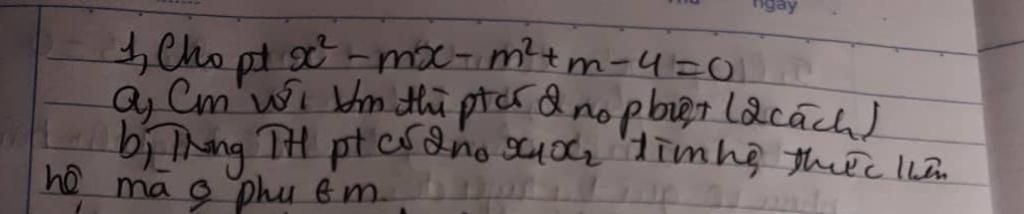 ngày
1, Cho pt x² - mx - m² + m - 4 = 0
a, Cm với ∀m thì pt có 2 no pbiệt (2 cách)
b, Trong TH pt có 2 no x1 x2 tìm hệ thức liên
hệ mà ko phụ ∈ m.